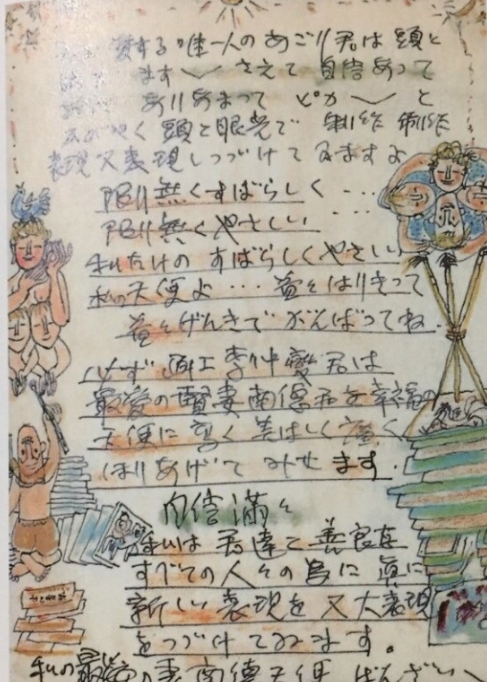 愛する唯一人のあごり君は頭と
ます〜 さえて 自信あって
ありあまって ピカ〜 と
かがやく 頭と眼光で 制作 制作
表現 又 表現しつづけてみますよ
限り無くすばらしく ・・・
限り無くやさしい
私だけの すばらしくやさしい
私の天使よ ・・・ 益々はりきって
益々げんきで がんばってね
必ず 画工 李仲燮君は
最愛の賢妻南德君を幸福の
天使に 高く 美しく 強く
ほりあげて みせ ます.
自信満々
は 君達と 善良な
すべての人々の為に 真に
新しい 表現を 又 大表現
をつづけてみます。
私の最愛の妻南德天使 ばんざい〜